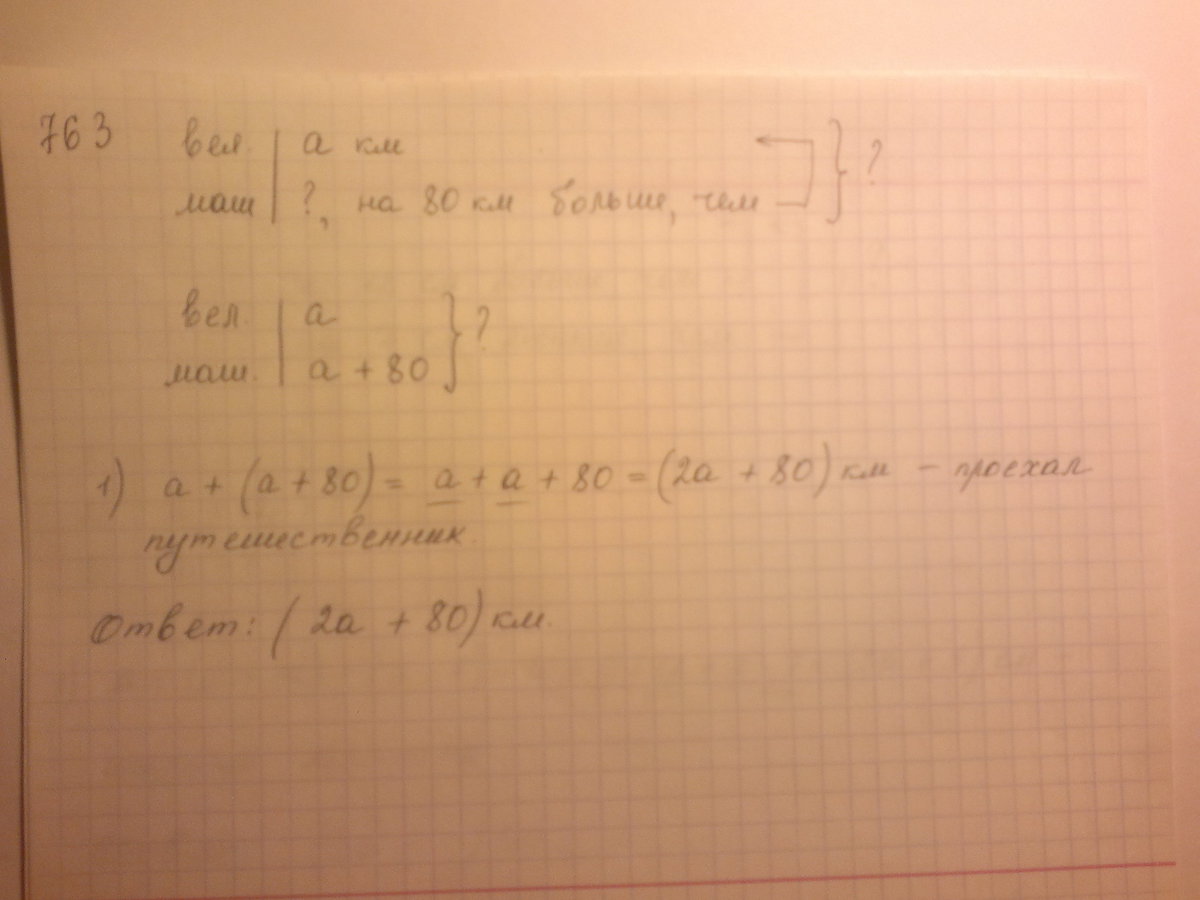 763 вел. | a км } ?
маш | ?, на 80 км больше, чем
вел. | a } ?
маш. | a + 80
1) a + (a + 80) = a + a + 80 = (2a + 80) км – проехал
путешественник.
Ответ: (2a + 80) км.